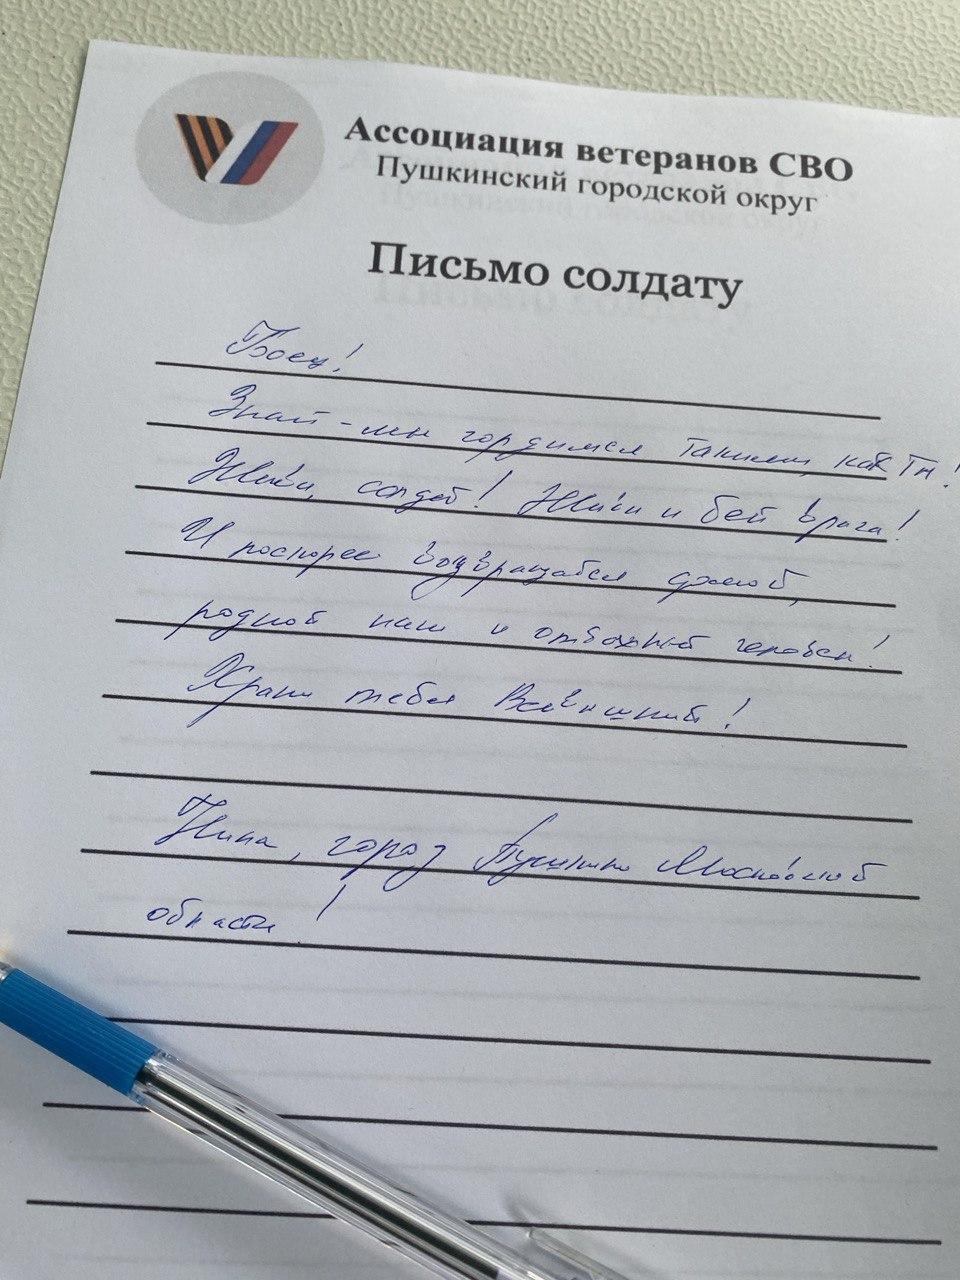 Ассоциация ветеранов СВО
Пушкинский городской округ
Письмо солдату
Боец!
Знай - мы гордимся такими, как ты!
Живи, солдат! Живи и бей врага!
И поскорее возвращайся домой,
родной наш и отважный человек!
Храни тебя Всевышний!
Нина, город Пушкино Московской
области!